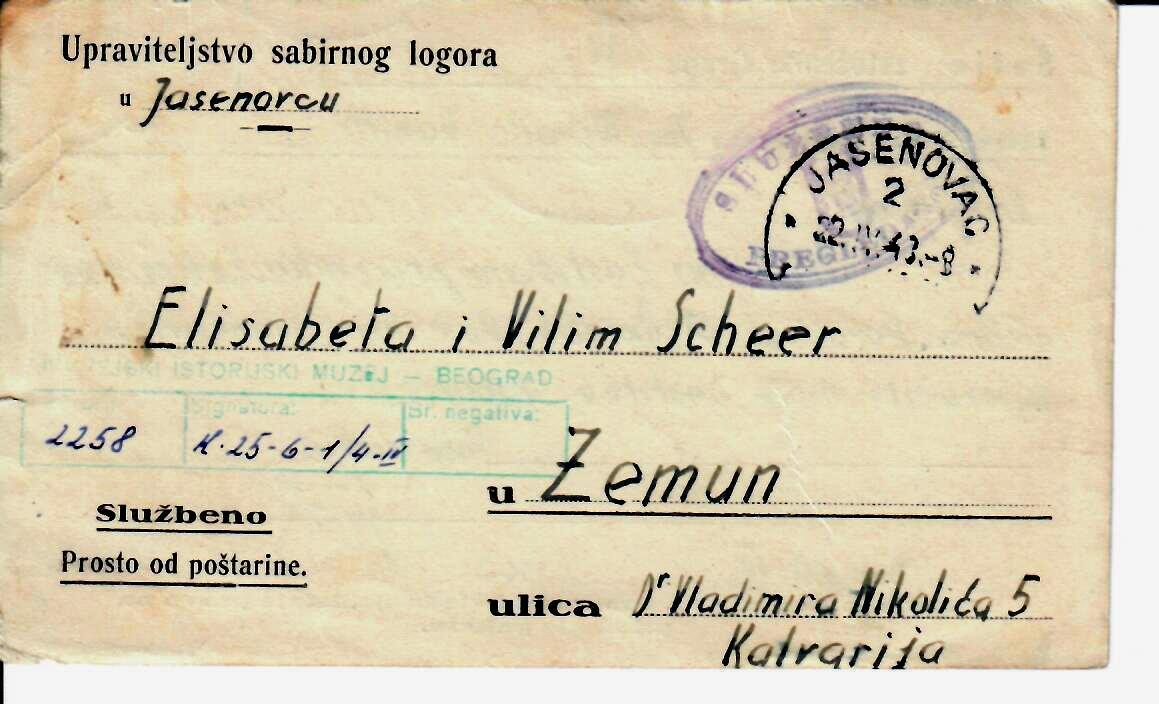 Upraviteljstvo sabirnog logora
u Jasenovcu
JASENOVAC
2
22.IV.43.-8
Elisabeta i Vilim Scheer
ISTORIJSKI MUZEJ – BEOGRAD
Signatura:
Br. negativa:
2258
K. 25-6-1/4-IV
u Zemun
Službeno
Prosto od poštarine.
ulica Dr Vladimira Nikolića 5
Kalvarija